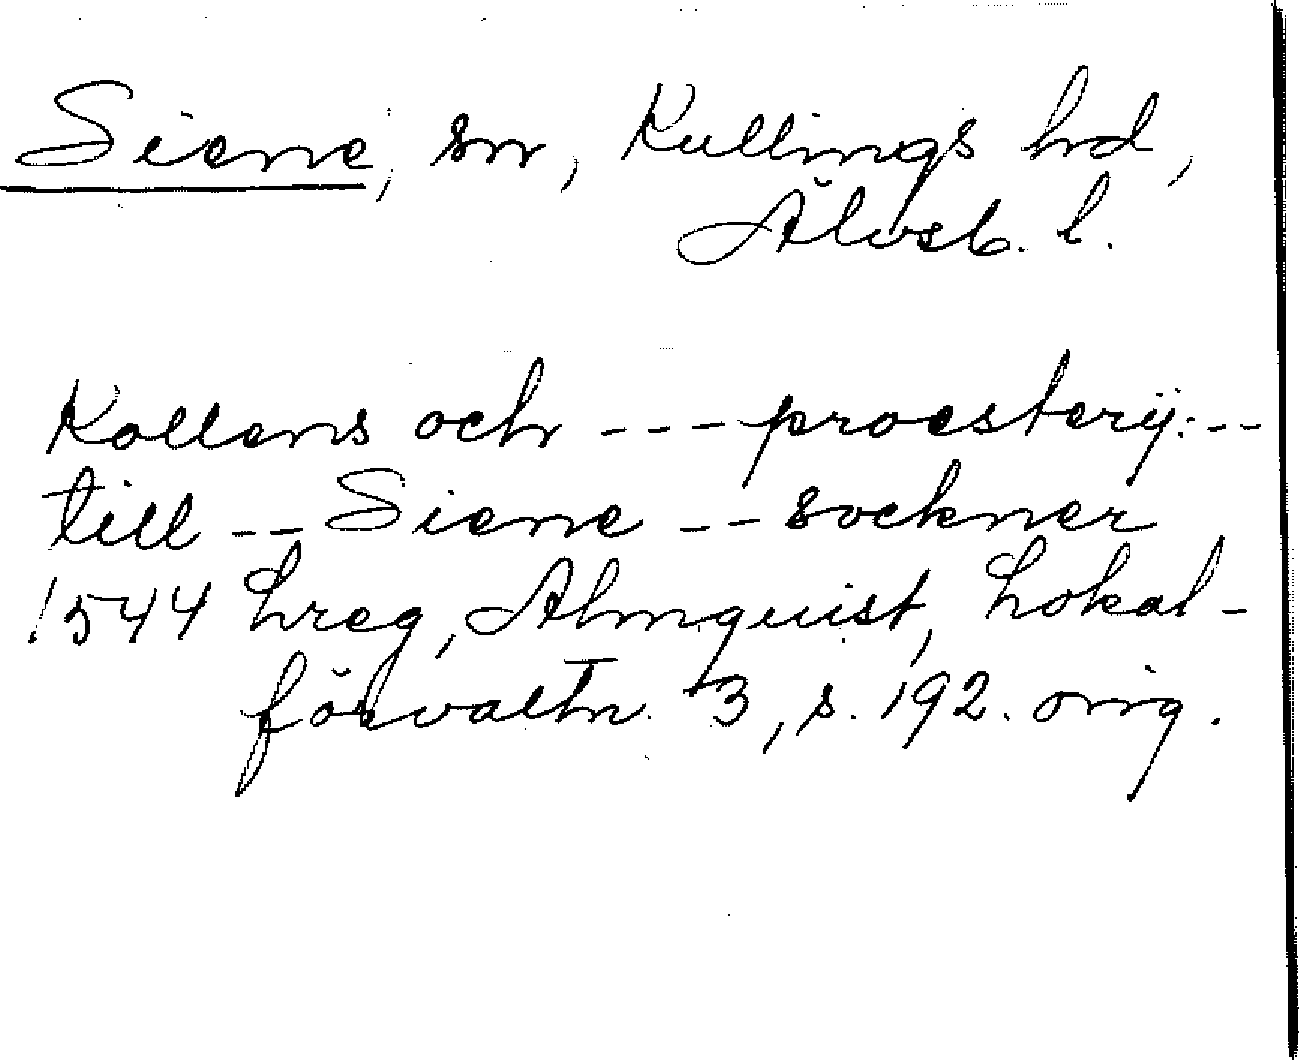 Siene, sn, Kullings hd,
Älvsb. l.
Kollens och --- proesterij: --
till -- Siene -- sockner
1544 Lreg, Almquist, Lokal-
förvaltn. 3, s. 192. orig.